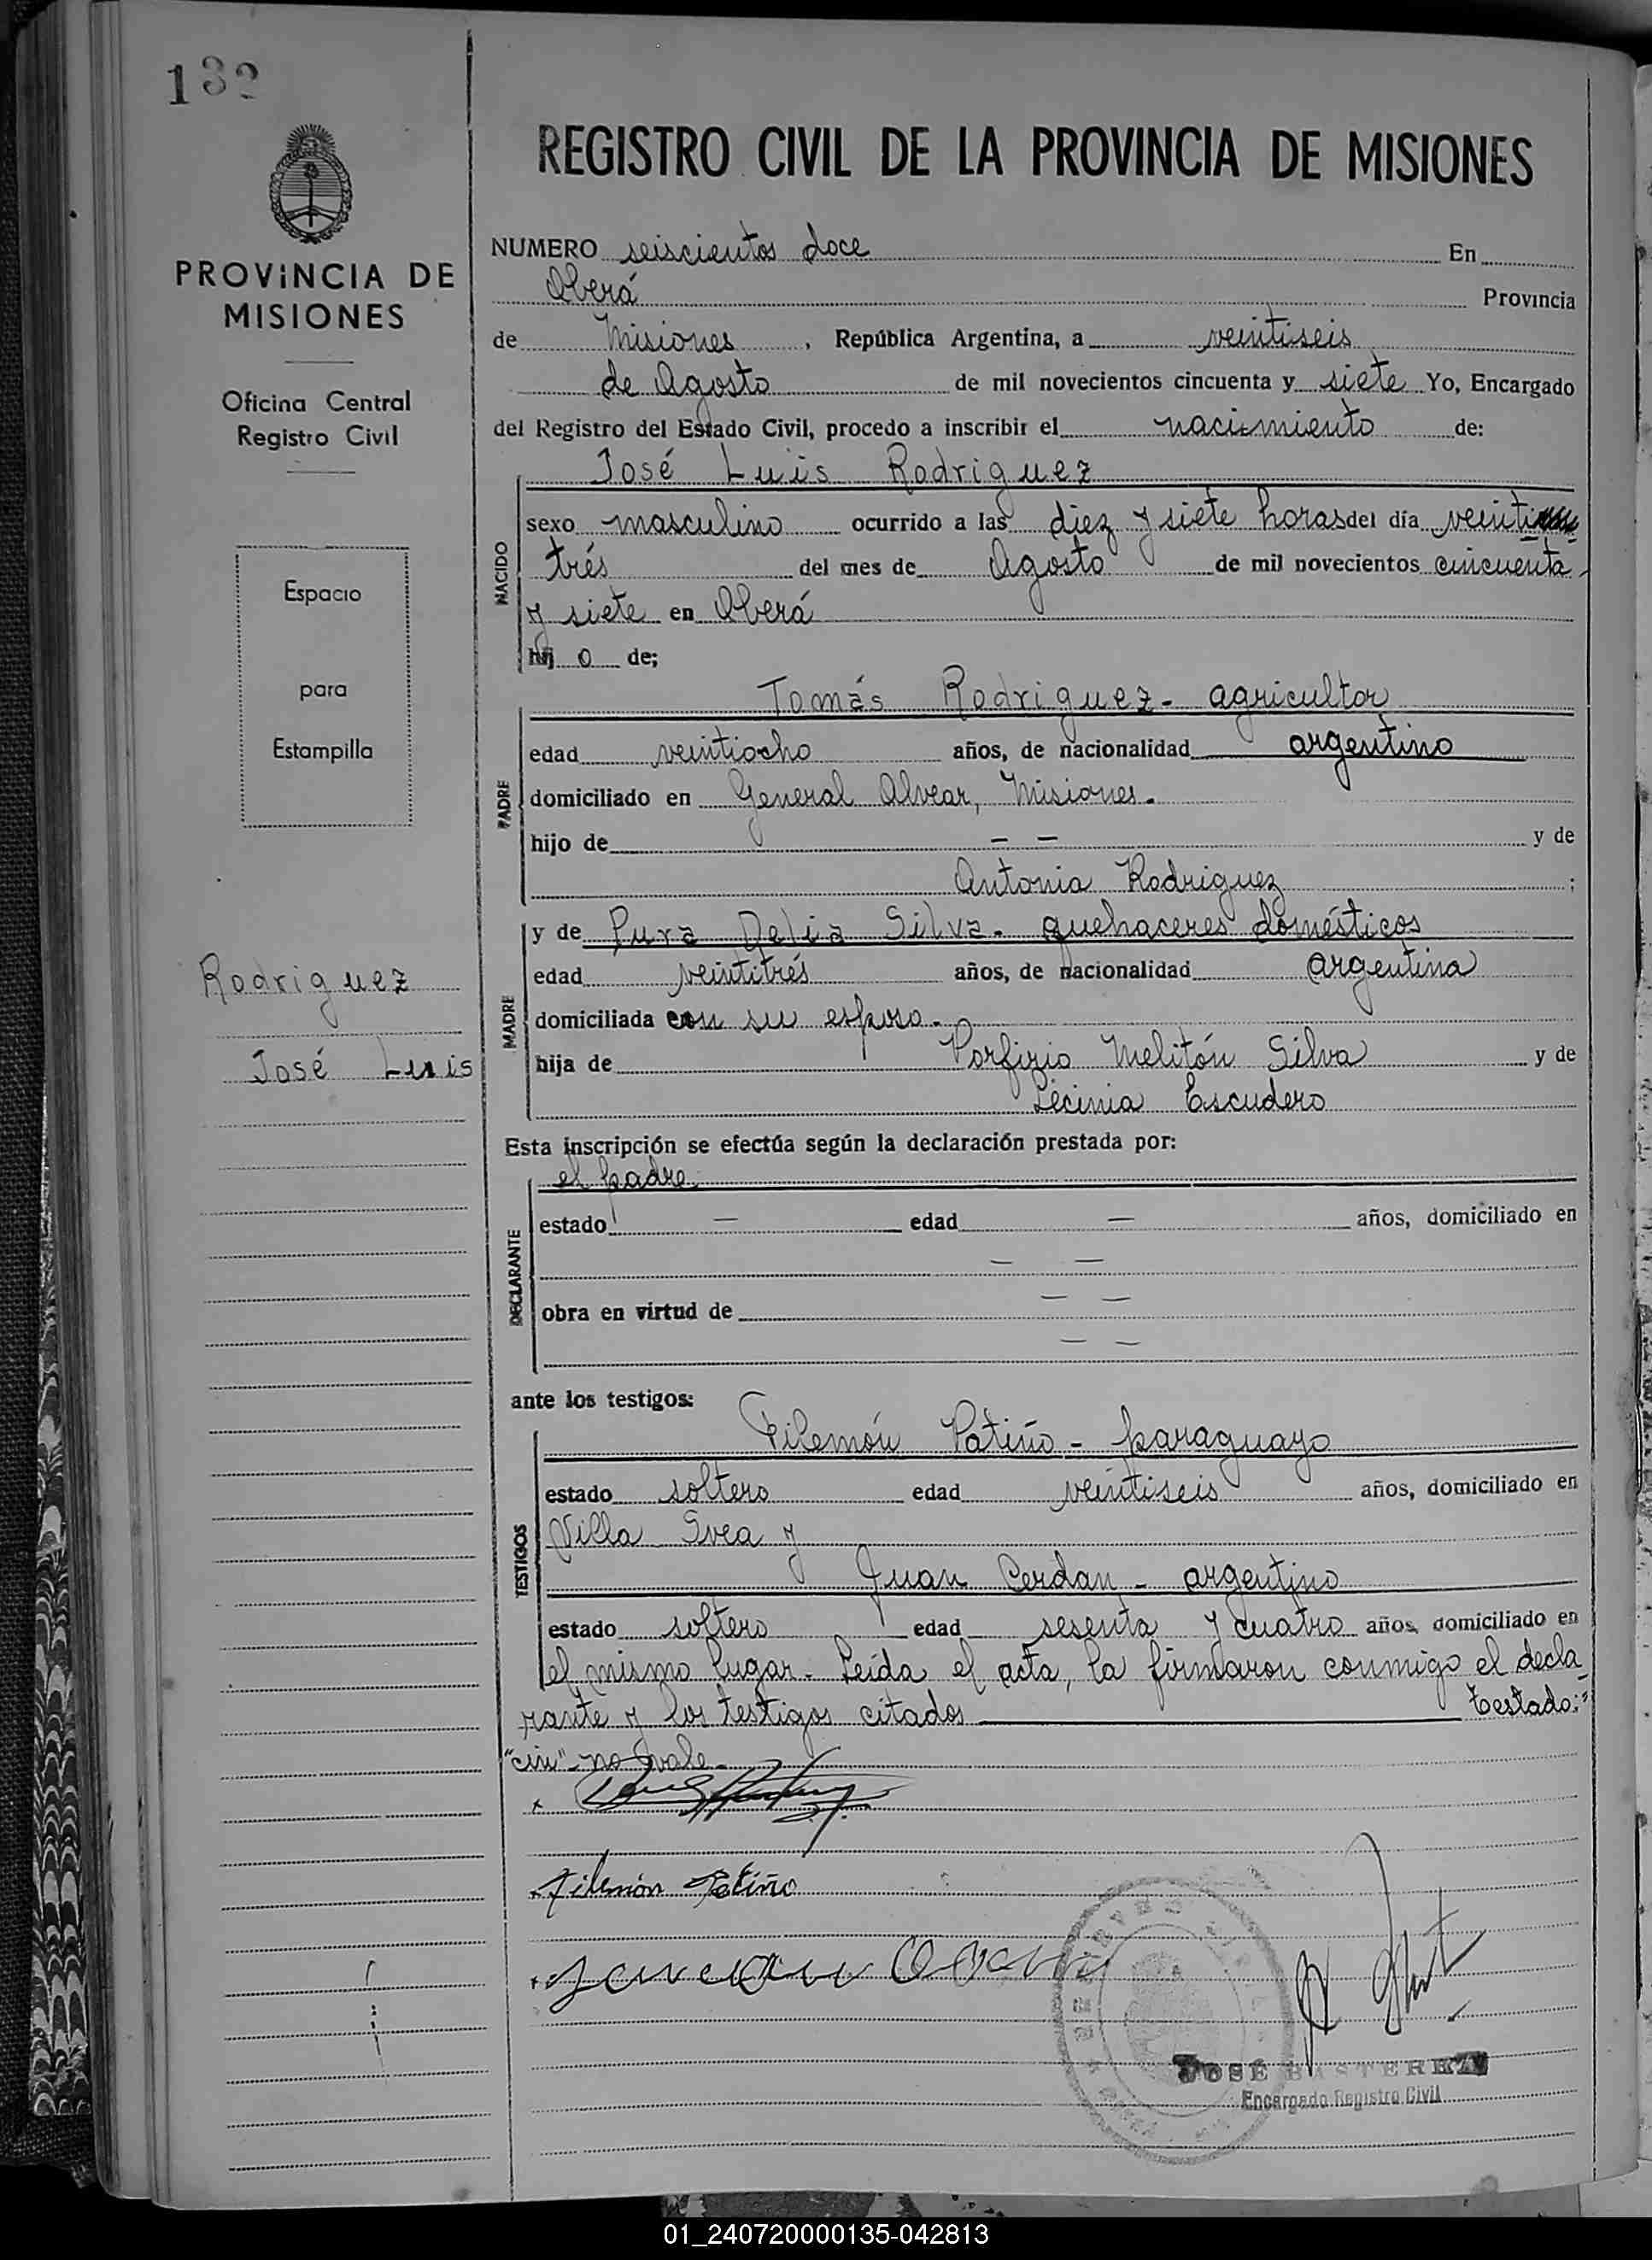 132
REGISTRO CIVIL DE LA PROVINCIA DE MISIONES
PROVINCIA DE
MISIONES
Oficina Central
Registro Civil
Espacio
para
Estampilla
Rodriguez
José Luis
NUMERO seiscientos doce En
Oberá Provincia
de Misiones, República Argentina, a veintiseis
de Agosto de mil novecientos cincuenta y siete Yo, Encargado
del Registro del Estado Civil, procedo a inscribir el nacimiento de:
José Luis Rodriguez
NACIDO
sexo masculino ocurrido a las diez y siete horas del día veinti
trés del mes de Agosto de mil novecientos cincuenta
y siete en Oberá
hij o de;
Tomás Rodriguez - agricultor
PADRE
edad veintiocho años, de nacionalidad argentino
domiciliado en General Alvear, Misiones.
hijo de — — y de
Antonia Rodriguez ;
MADRE
y de Pura Delia Silva - quehaceres domésticos
edad veintitrés años, de nacionalidad argentina
domiciliada con su esposo.
hija de Porfirio Melitón Silva y de
Lecinia Escudero
Esta inscripción se efectúa según la declaración prestada por:
el padre
DECLARANTE
estado — edad — años, domiciliado en
— —
obra en virtud de — —
— —
ante los testigos:
Filemón Patiño - paraguayo
TESTIGOS
estado soltero edad veintiseis años, domiciliado en
Villa Svea y
Juan Cerdan - argentino
estado soltero edad sesenta y cuatro años, domiciliado en
el mismo lugar. Leída el acta, la firmaron conmigo el decla
rante y los testigos citados — Testado:"
"cin" - no vale -
Filemón Patiño
JOSÉ BASTERRA
Encargado Registro Civil
01_240720000135-042813